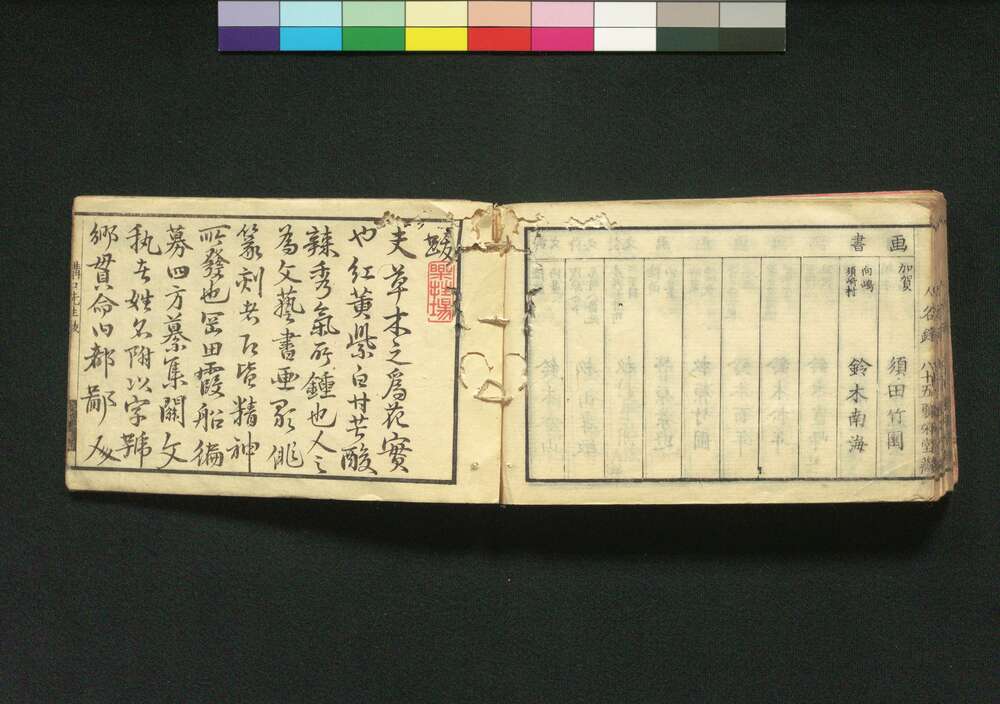 画 加賀 須田竹園
書 向嶋 須崎村 鈴木南海
跋
夫草木之為花實
也紅黄紫白甘苦酸
辣秀氣所鍾也人之
為文藝書画
篆刻者乃皆精神
所發也岡田霞船徧
募四方纂集關文
執者姓名附以字號
郷貫命曰都鄙人